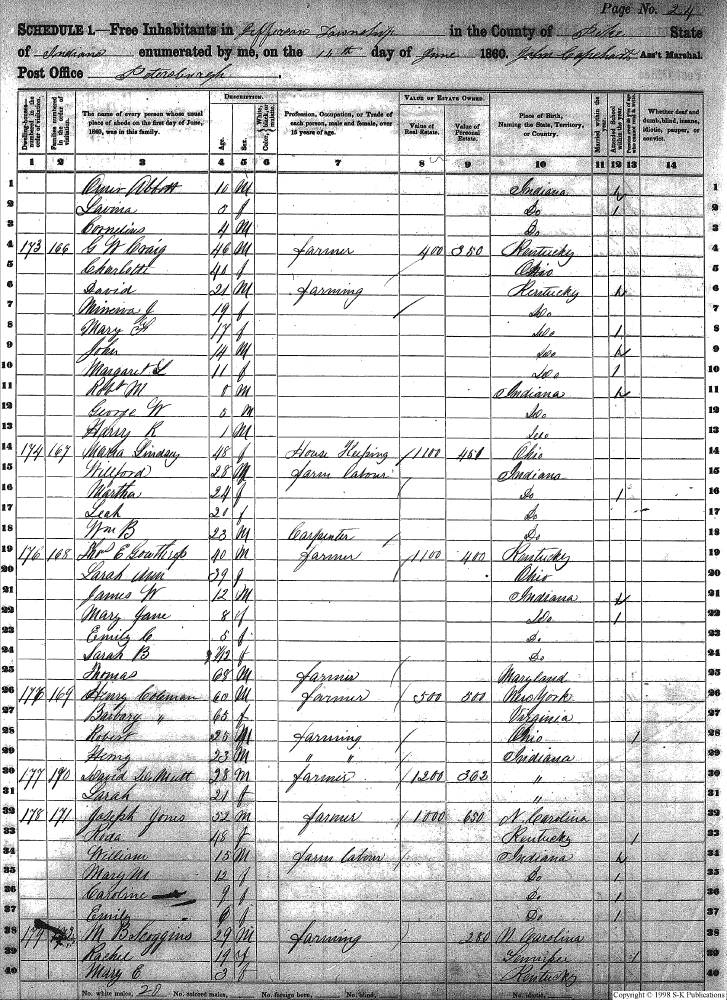 Page No. 24
SCHEDULE 1.—Free Inhabitants in Jefferson Township in the County of Pike State
of Indiana enumerated by me, on the 14th day of June 1860. John Capehart Ass't Marshal.
Post Office Petersburgh
DESCRIPTION. VALUE OF ESTATE OWNED.
Dwelling-houses— numbered in the order of visitation. Families numbered in the order of visitation. The name of every person whose usual place of abode on the first day of June, 1860, was in this family. Age. Sex. Color, White, black, or mulatto. Profession, Occupation, or Trade of each person, male and female, over 15 years of age. Value of Real Estate. Value of Personal Estate. Place of Birth, Naming the State, Territory, or Country. Married within the year. Attended School within the year. Whether deaf and dumb, blind, insane, idiotic, pauper, or convict.
1 2 3 4 5 6 7 8 9 10 11 12 13 14
1 Abbott 10 M Indiana 1
2 Lavina f Do 1 2
3 Cornelius 4 M Do 3
4 173 166 G W Craig 46 M farmer 400 350 Kentucky 4
5 Charlotte 41 f Ohio 5
6 David 21 M farming Kentucky 6
7 Minerva J 19 f Do 7
8 Mary 17 f Do 1 8
9 John 14 M Do 9
10 Margaret L 11 f Do 1 10
11 Robt M 8 M Indiana 11
12 George W M Do 12
13 Harry R 1 M Do 13
14 174 167 Martha Lindsay 48 f House Keeping 1100 450 Ohio 14
15 Willford 28 M farm labour Indiana 15
16 Martha 24 f Do 1 16
17 Leah 20 f Do 17
18 Wm B 23 M Carpenter Do 18
19 168 Thos E 40 M farmer 1100 400 Kentucky 19
20 Sarah Ann 39 f Ohio 20
21 James W 12 M Indiana 21
22 Mary Jane 8 f Do 1 22
23 Emily C 5 f Do 23
24 Sarah B f Do 24
25 Thomas 68 M farmer Maryland 25
26 176 169 Henry Coleman 60 M farmer 500 300 New York 26
27 Barbary " 65 f Virginia 27
28 Robert 25 M farming Ohio 1 28
29 Henry 23 M " " Indiana 29
30 177 170 David 28 M farmer 1200 362 " 30
31 Sarah 21 f " 31
32 178 171 Joseph Jones 52 M farmer 1000 650 N. Carolina 32
33 48 f Kentucky 1 33
34 William 15 M farm labour Indiana 34
35 Mary M 12 f Do 1 35
36 Caroline 9 f Do 1 36
37 Emily 6 f Do 1 37
38 179 172 M B Scoggins 29 M farming 280 N. Carolina 38
39 Rachel 19 f 1 39
40 Mary E f Kentucky 40
No. white males, 20 No. colored males, No. foreign born, No. blind, No. idiotic,
Copyright © 1998 S-K Publications